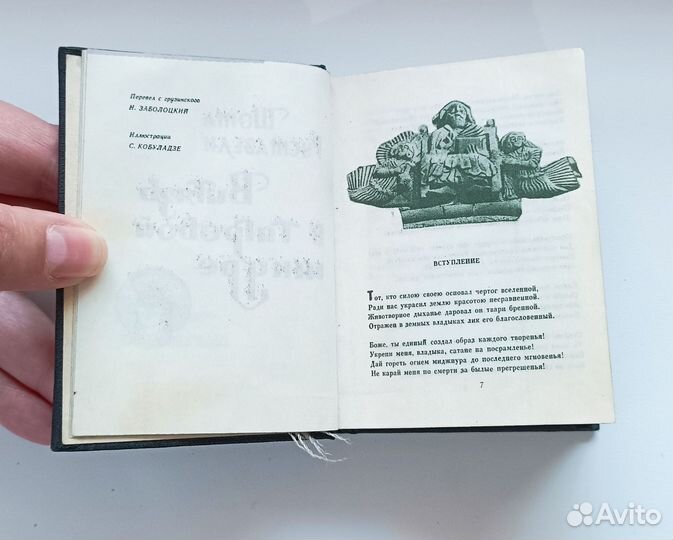 Перевел с грузинского
Н. ЗАБОЛОЦКИЙ
Иллюстрации
С. КОБУЛАДЗЕ
ВСТУПЛЕНИЕ
Тот, кто силою своею основал чертог вселенной,
Ради нас украсил землю красотою несравненной.
Животворное дыханье даровал он твари бренной.
Отражен в земных владыках лик его благословенный.
Боже, ты единый создал образ каждого творенья!
Укрепи меня, владыка, сатане на посрамленье!
Дай гореть огнем миджнура до последнего мгновенья!
Не карай меня по смерти за былые прегрешенья!
7
Avito